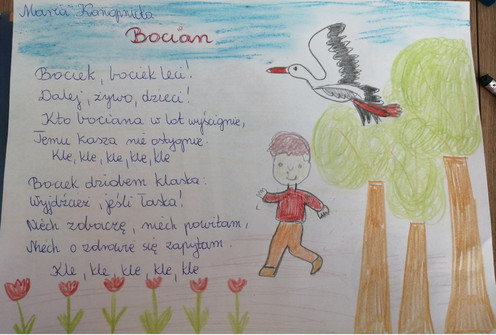 Maria Konopnicka
Bocian
Bociek, bociek leci!
Dalej, żywo, dzieci!
Kto bociana w lot wyścignie,
Temu kasza nie ostygnie.
Kle, kle, kle, kle, kle
Bociek dziobem klaska:
Wyjdźcież, jeśli łaska!
Niech zobaczę, niech powitam,
Niech o zdrowie się zapytam.
Kle, kle, kle, kle, kle